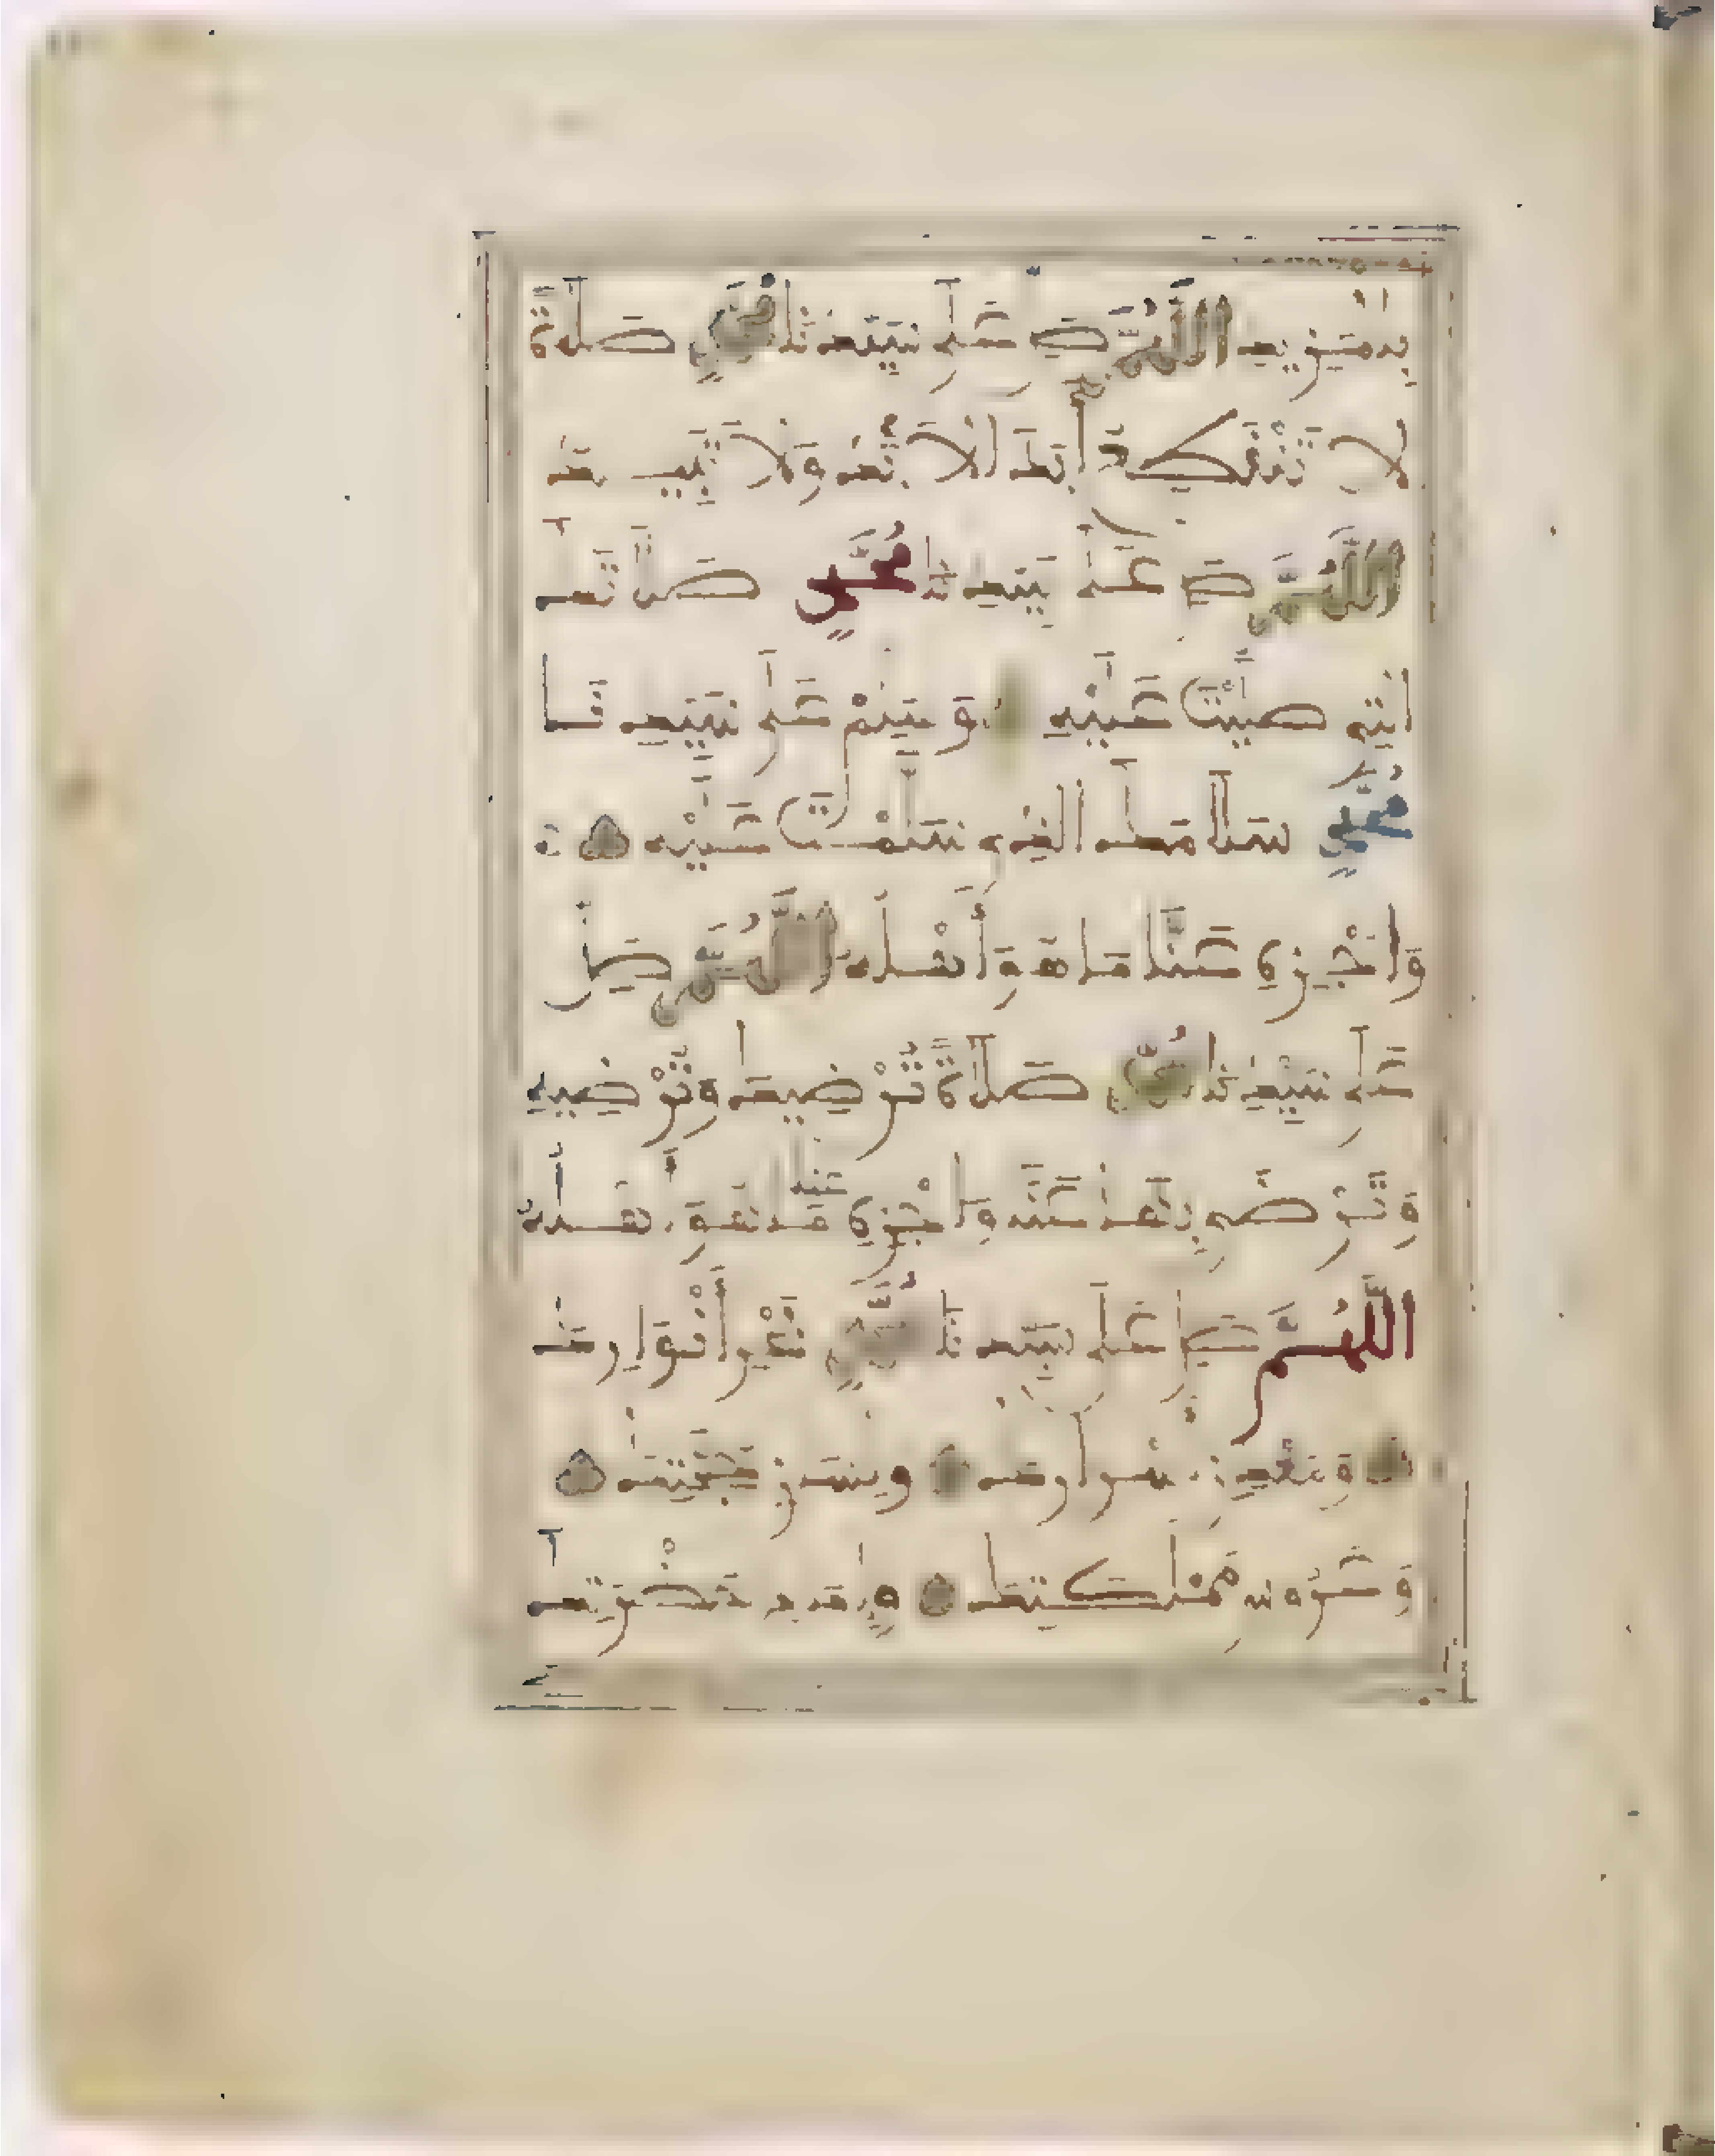 اللَّهُمَّ صَلِّ عَلَى نَبِيِّنَا مُحَمَّدٍ صَلَاةً
لَا تَنْفَكُّ أَبَدَ الْأَبَدِ وَلَا تَبِيدُ
اللَّهُمَّ صَلِّ عَلَى نَبِيِّنَا مُحَمَّدٍ صَلَاتَكَ
الَّتِي صَلَّيْتَ عَلَيْهِ وَسَلِّمْ عَلَى نَبِيِّنَا
مُحَمَّدٍ سَلَامَكَ الَّذِي سَلَّمْتَ عَلَيْهِ
وَاجْزِهِ عَنَّا مَا هُوَ أَهْلُهُ اللَّهُمَّ صَلِّ
عَلَى نَبِيِّنَا مُحَمَّدٍ صَلَاةً تُرْضِيكَ وَتُرْضِيهِ
وَتَرْضَى بِهَا عَنَّا وَاجْزِهِ عَنَّا مَا هُوَ أَهْلُهُ
اللَّهُمَّ صَلِّ عَلَى نَبِيِّنَا مُحَمَّدٍ بَحْرِ أَنْوَارِكَ
وَمَعْدِنِ أَسْرَارِكَ وَلِسَانِ حُجَّتِكَ
وَعَرُوسِ مَمْلَكَتِكَ وَإِمَامِ حَضْرَتِكَ